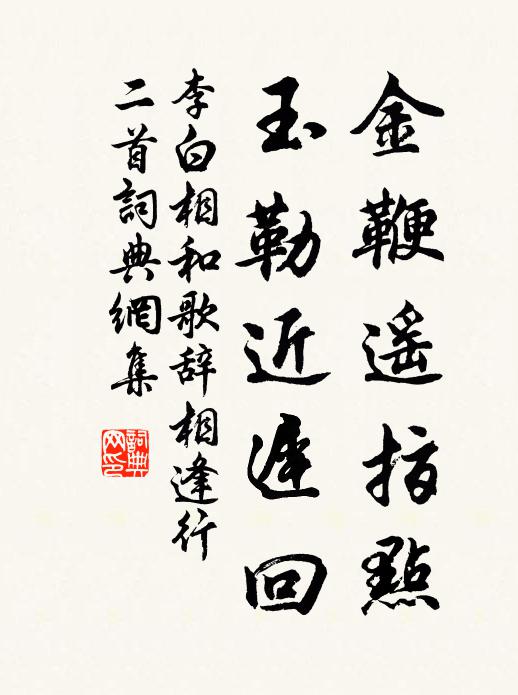 金鞭遥指點
玉勒近遲回
李白相和歌辞相逢行
二首詞典網集
詞典網印